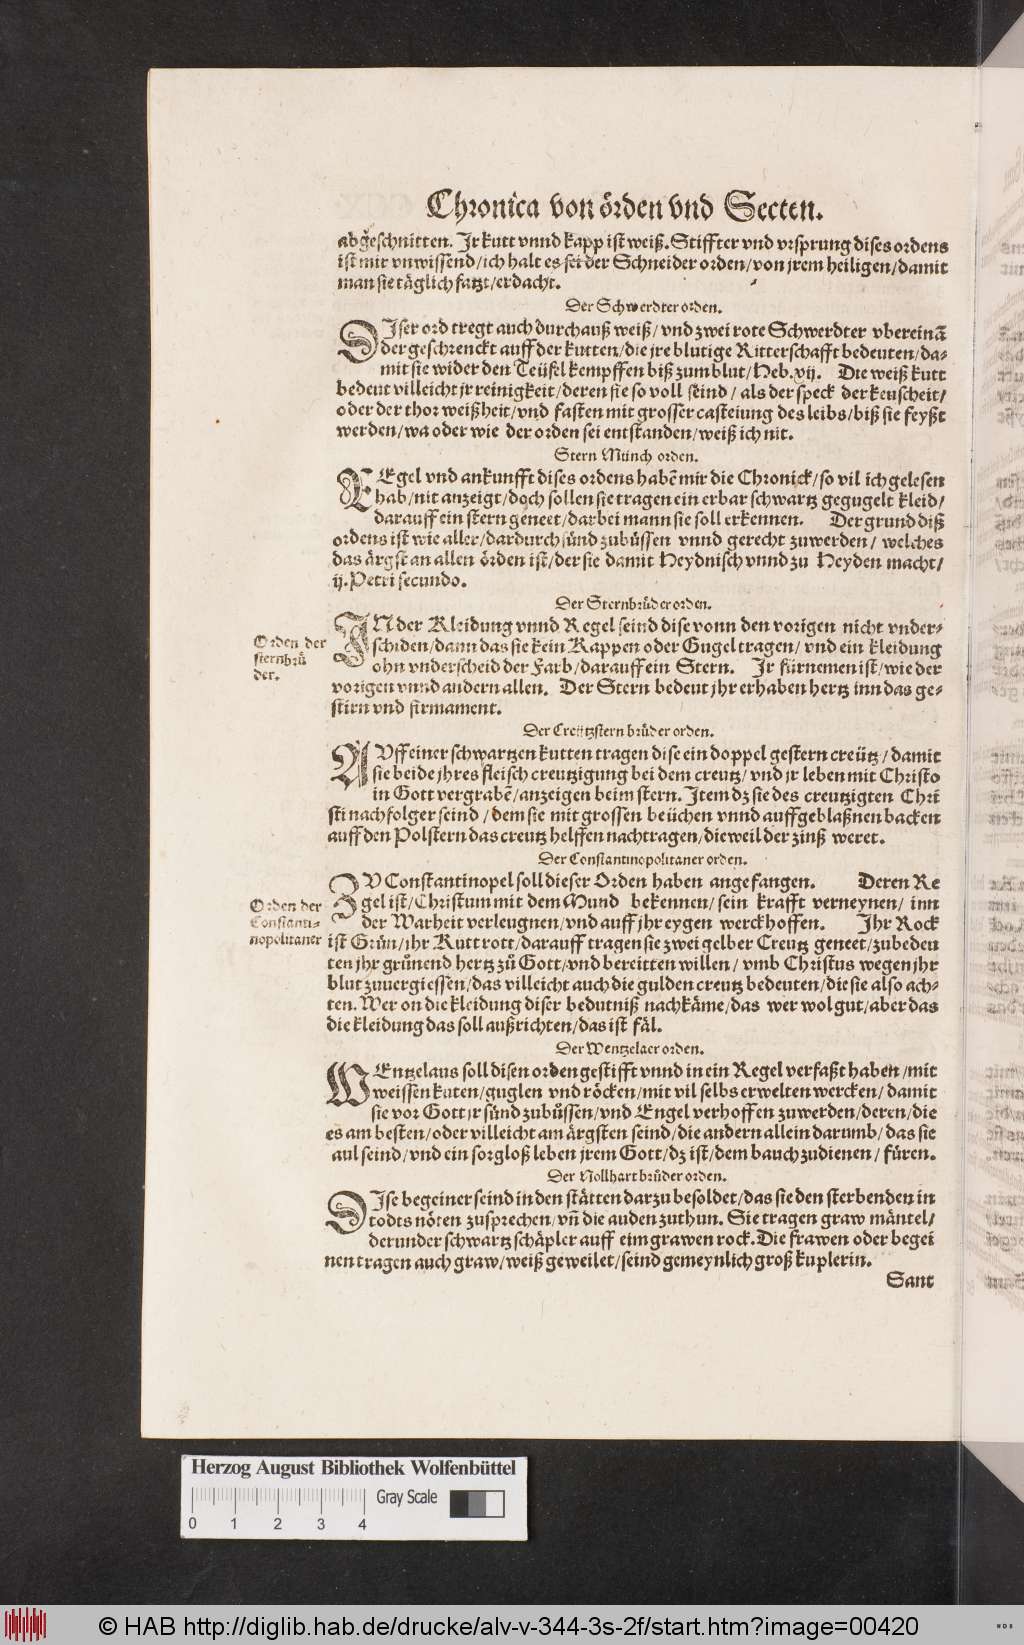 Chronica von örden vnd Secten.
abgeschnitten. Jr kutt vnnd kapp ist weiß. Stiffter vnd vrsprung dises ordens
ist mir vnwissend/ich halt es sei der Schneider orden/von jrem heiligen/damit
man sie täglich fatzt/erdacht.
Der Schwerdter orden.
DJser ord tregt auch durchauß weiß/vnd zwei rote Schwerdter vbereinã
der geschrenckt auff der kutten/die jre blutige Ritterschafft bedeuten/da-
mit sie wider den Teüfel kempffen biß zum blut/Heb.xij. Die weiß kutt
bedeut villeicht jr reinigkeit/deren sie so voll seind/ als der speck der keuscheit/
oder der thor weißheit/vnd fasten mit grosser casteiung des leibs/biß sie feyßt
werden/wa oder wie der orden sei entstanden/weiß ich nit.
Stern Münch orden.
REgel vnd ankunfft dises ordens habẽ mir die Chronick/so vil ich gelesen
hab/nit anzeigt/doch sollen sie tragen ein erbar schwartz gegugelt kleid/
darauff ein stern geneet/darbei mann sie soll erkennen. Der grund diß
ordens ist wie aller/dardurch sünd zubůssen vnnd gerecht zuwerden/ welches
das ärgst an allen örden ist/der sie damit Heydnisch vnnd zu Heyden macht/
ij. Petri secundo.
Der Sternbrůder orden.
Orden der
sternbrů
der.
JN der Kleidung vnnd Regel seind dise vonn den vorigen nicht vnder-
schiden/dann das sie kein Kappen oder Gugel tragen/vnd ein kleidung
ohn vnderscheid der Farb/darauff ein Stern. Jr fürnemen ist/wie der
vorigen vnnd andern allen. Der Stern bedeut jhr erhaben hertz inn das ge-
stirn vnd firmament.
Der Creützstern brůder orden.
AVff einer schwartzen kutten tragen dise ein doppel gestern creütz/damit
sie beide jhres fleisch creutzigung bei dem creutz/vnd jr leben mit Christo
in Gott vergrabẽ/anzeigen beim stern. Jtem dz sie des creutzigten Chri
sti nachfolger seind/dem sie mit grossen beüchen vnnd auffgeblaßnen backen
auff den Polstern das creutz helffen nachtragen/dieweil der zinß weret.
Der Constantinopolitaner orden.
Orden der
Constanti-
nopolitaner
ZV Constantinopel soll dieser Orden haben angefangen. Deren Re
gel ist/Christum mit dem Mund bekennen/sein krafft verneynen/ inn
der Warheit verleugnen/vnd auff jhr eygen werck hoffen. Jhr Rock
ist Grün/jhr Kutt rott/darauff tragen sie zwei gelber Creutz geneet/zubedeu
ten jhr grůnend hertz zů Gott/vnd bereitten willen/ vmb Christus wegen jhr
blut zuuergiessen/das villeicht auch die gulden creutz bedeuten/die sie also ach-
ten. Wer on die kleidung diser bedutniß nachkäme/das wer wol gut/aber das
die kleidung das soll außrichten/das ist fäl.
Der Wentzelaer orden.
WEntzelaus soll disen orden gestifft vnnd in ein Regel verfaßt haben/mit
weissen kuten/guglen vnd röcken/mit vil selbs erwelten wercken/damit
sie vor Gott jr sünd zubůssen/vnd Engel verhoffen zuwerden/deren/die
es am besten/oder villeicht am ärgsten seind/die andern allein darumb/das sie
aul seind/vnd ein sorgloß leben jrem Gott/dz ist/dem bauch zudienen/ füren.
Der Nollhart brůder orden.
DJse begeiner seind in den stätten darzu besoldet/das sie den sterbenden in
todts nöten zusprechen/vñ die auden zuthun. Sie tragen graw mäntel/
derunder schwartz schäpler auff eim grawen rock. Die frawen oder begei
nen tragen auch graw/weiß geweilet/seind gemeynlich groß kuplerin.
Sant
Herzog August Bibliothek Wolfenbüttel
Gray Scale
0 1 2 3 4
© HAB http://diglib.hab.de/drucke/alv-v-344-3s-2f/start.htm?image=00420